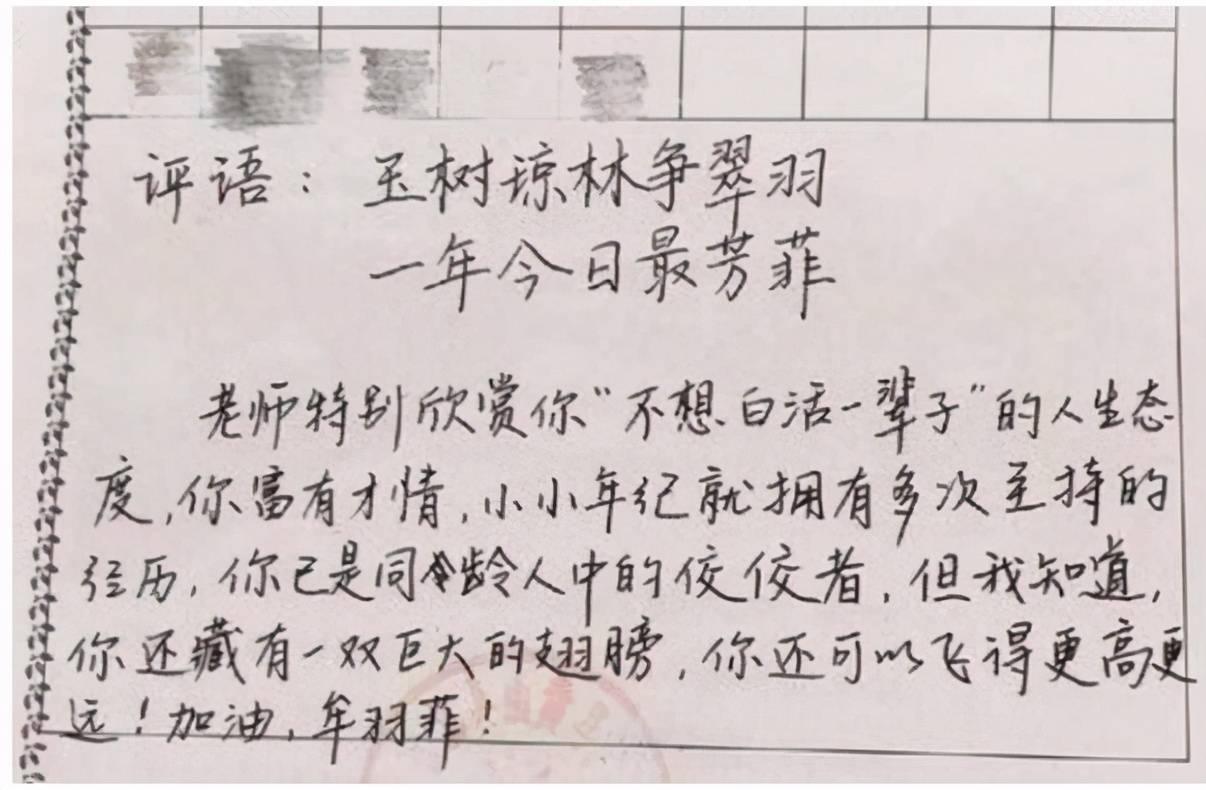 评语：玉树琼林争翠羽
一年今日最芳菲
老师特别欣赏你“不想白活一辈子”的人生态
度，你富有才情，小小年纪就拥有多次主持的
经历，你已是同龄人中的佼佼者，但我知道，
你还藏有一双巨大的翅膀，你还可以飞得更高更
远！加油，牟羽菲！